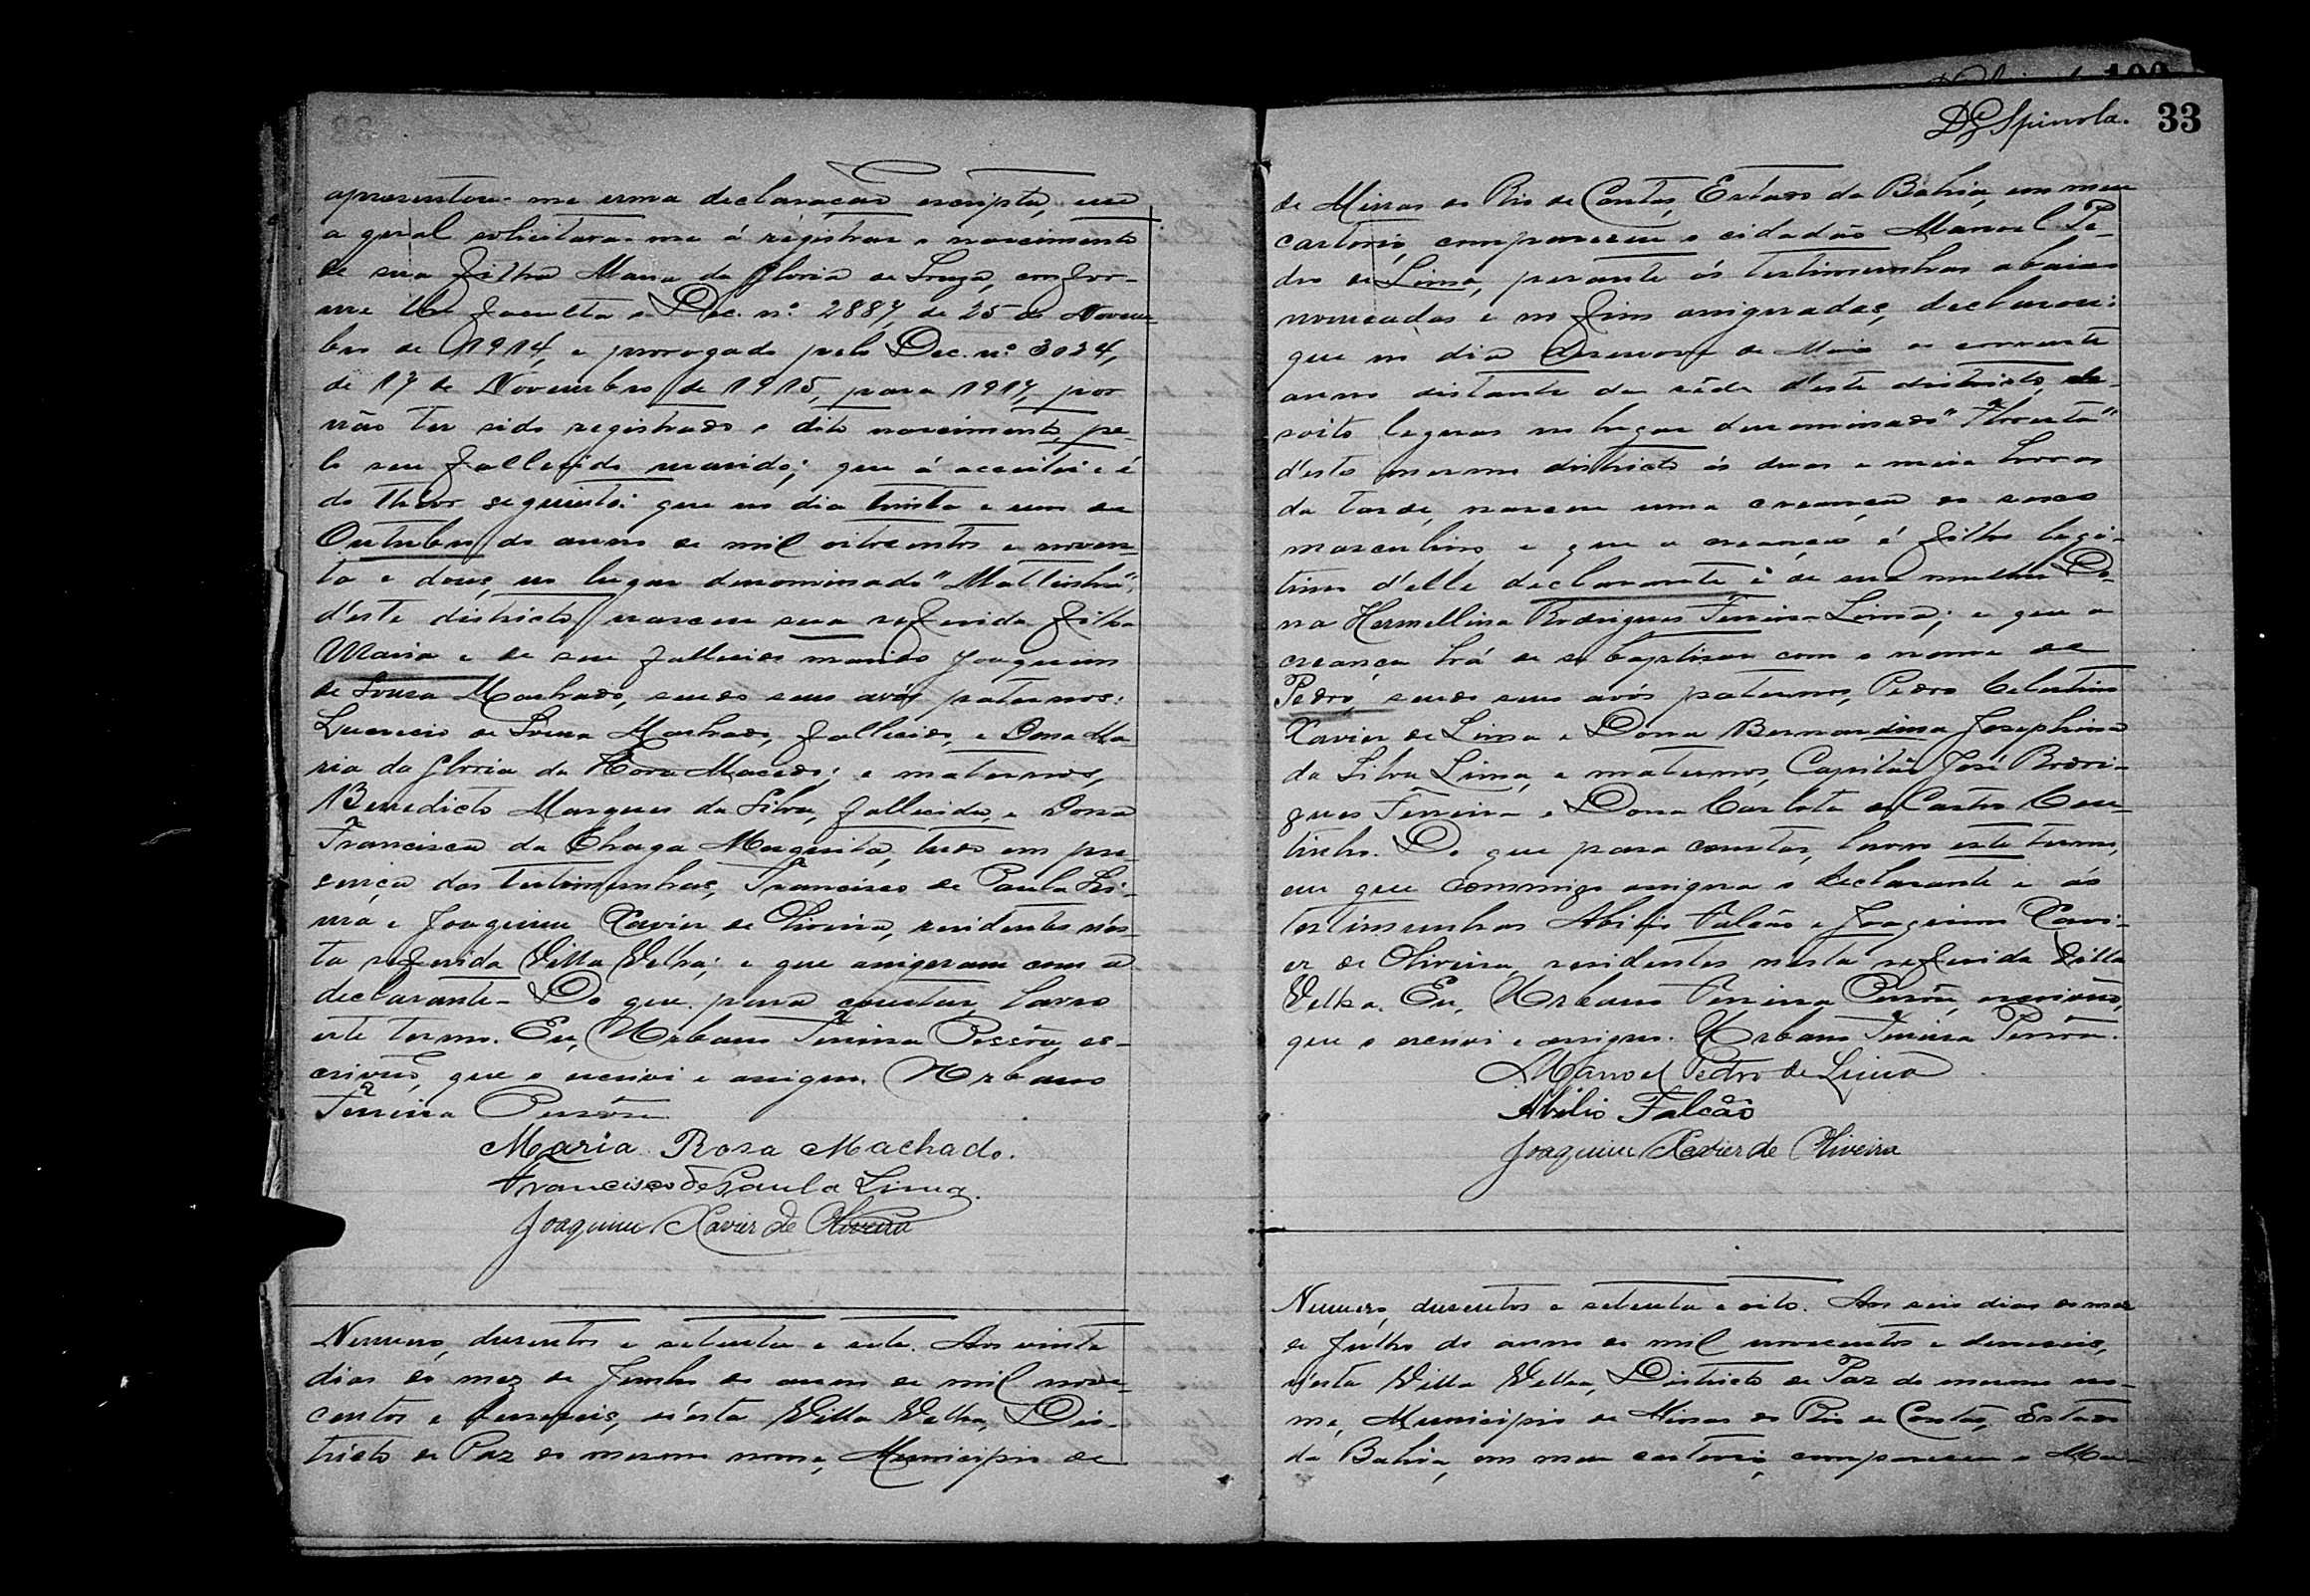 apresentou-me uma declaração escripta, em
a qual solicitava-me á registrar o nascimento
de sua filha Maria da Gloria de Souza, confor-
me lhe faculta o Dec. nº 2887, de 25 de Novem-
bro de 1914, e prorogado pelo Dec. nº 3024,
de 17 de Novembro de 1915, para 1917, por
não ter sido registrado o dito nascimento pe-
lo seu fallecido marido; que á acceitei e é
do theor seguinte: que no dia trinta e um de
Outubro do anno de mil oitocentos e noven-
ta e dous, no lugar denominado "Mattinha",
d'este districto, nasceu sua referida filha
Maria e de seu fallecido marido Joaquim
de Souza Machado, sendo seus avós paternos:
de Souza Machado, fallecido, e Dona Ma-
ria da Gloria da Macedo; e maternos,
Benedicto Marques da Silva, fallecido, e Dona
Francisca da Chaga Mesquita, tudo em pre-
sença das testimunhas, Francisco de Paula Li-
ma e Joaquim Xavier de Oliveira, residentes nés-
ta referida Villa Velha; e que assignam com a
declarante. Do que para constar, lavro
este termo. Eu, Urbano Ferreira Pessôa, es-
crivão, que o escrevi e assigno. Urbano
Ferreira Pessôa.
Maria Rosa Machado.
Francisco de Paula Lima.
Joaquim Xavier de Oliveira
Numero, dusentos e setenta e sete. Aos vinte
dias do mez de Junho do anno de mil nove-
centos e deseseis, n'esta Villa Velha, Dis-
tricto de Paz do mesmo nome, Municipio de
DGSpinola. 33
de Minas do Rio de Contas, Estado da Bahia, em meu
cartorio, compareceu o cidadão Manoel Pe-
dro de Lima, perante ás testimunhas abaixo
nomeadas e no fim assignadas, declarou:
que no dia desenove de Maio do corrente
anno distante da séde d'este districto de-
soito leguas no lugar denominado
d'este mesmo districto ás duas e meia horas
da tarde, nasceu uma creança do sexo
masculino, e que a creança é filho legi-
timo d'elle declarante e de sua mulher Do-
na Hermellina Rodrigues Ferreira Lima; e que a
creança há de se baptisar com o nome de
Pedro, sendo seus avós paternos, Pedro Celestino
Xavier de Lima e Dona Bernardina Josephina
da Silva Lima, e maternos, Capitão José Rodri-
gues Ferreira e Dona Carlota de Castro Cou-
tinho. Do que para constar, lavro este termo,
em que commigo assigna o declarante e ás
testimunhas Abilio Falcão e Joaquim Xavi-
er de Oliveira, residentes nesta referida Villa
Velha. Eu, Urbano Ferreira Pessôa, escrivão,
que o escrevi e assigno. Urbano Ferreira Pessôa.
Manoel Pedro de Lima
Abilio Falcão
Joaquim Xavier de Oliveira
Numero, dusentos e setenta e oito. Aos seis dias do mez
de Julho do anno de mil novecentos e deseseis,
n'esta Villa Velha, Districto de Paz do mesmo no-
me, Municipio de Minas do Rio de Contas, Estado
da Bahia, em meu cartorio, compareceu o Ma-